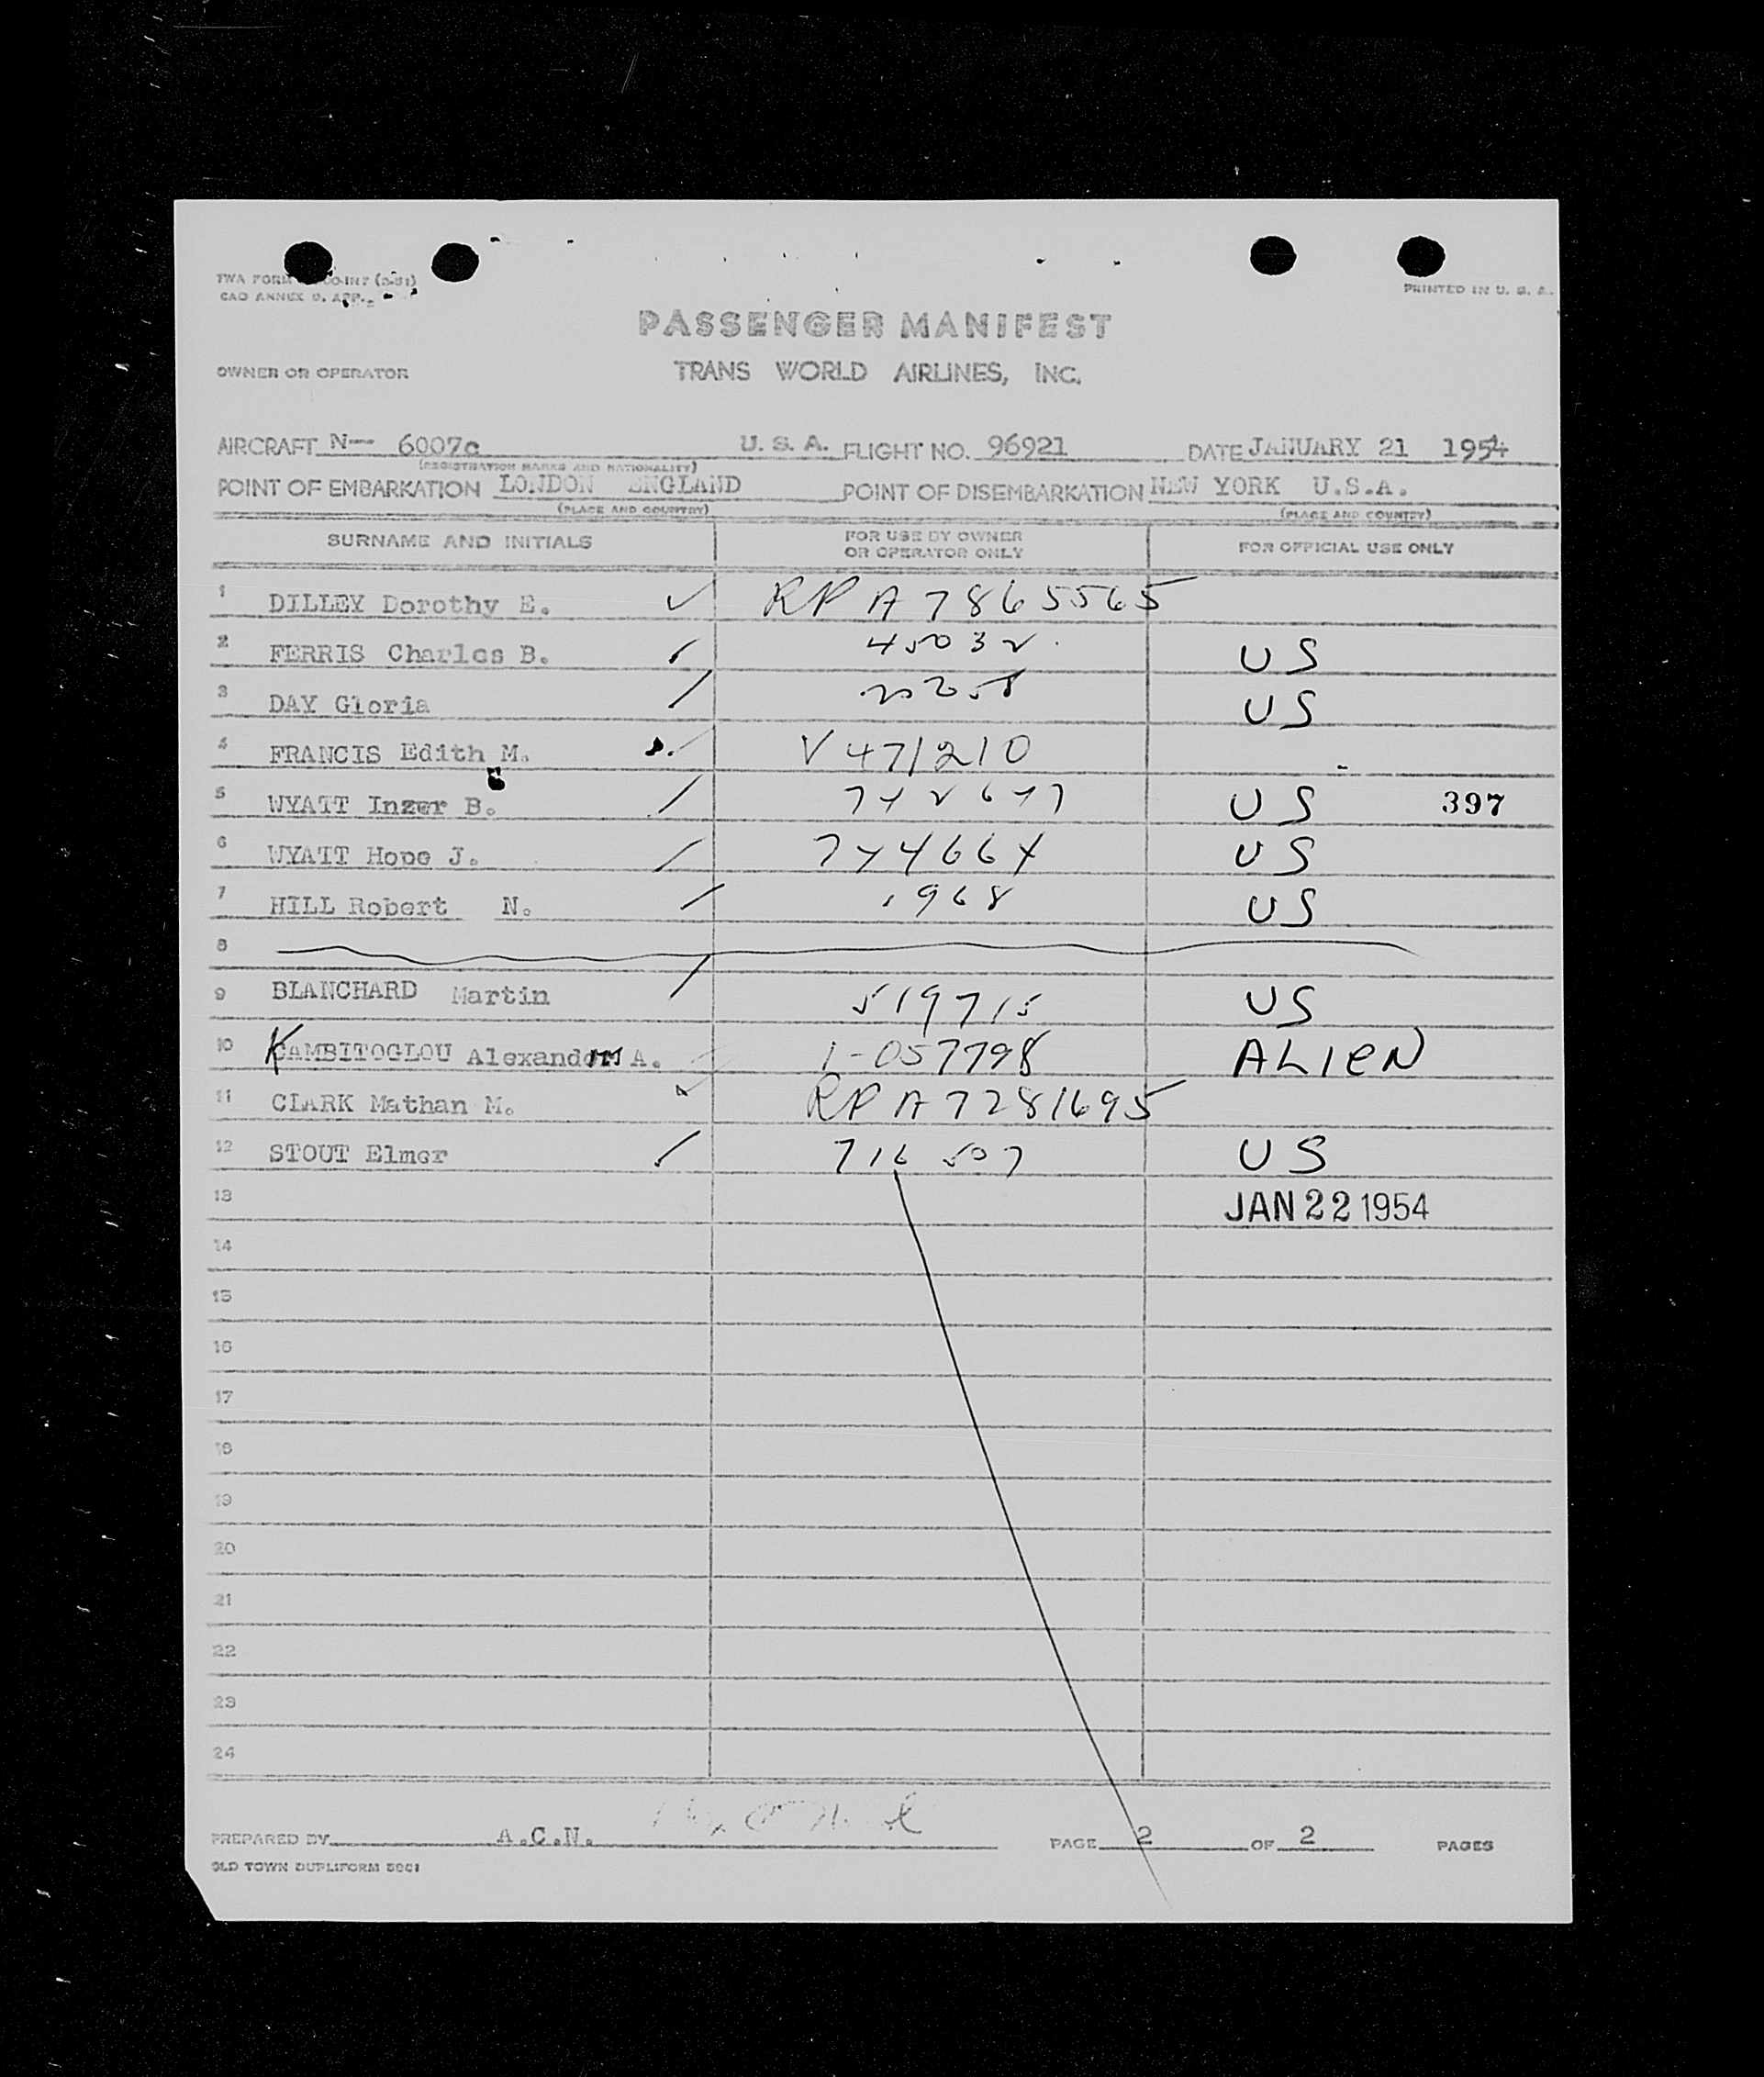 PRINTED IN U. S. A.
CAO ANNEX 9. APP.
PASSENGER MANIFEST
OWNER OR OPERATOR TRANS WORLD AIRLINES, INC.
AIRCRAFT N-- 6007c U. S. A. FLIGHT NO. 96921 DATE JANUARY 21 1954
(REGISTRATION MARKS AND NATIONALITY)
POINT OF EMBARKATION LONDON ENGLAND POINT OF DISEMBARKATION NEW YORK U.S.A.
(PLACE AND COUNTRY) (PLACE AND COUNTRY)
SURNAME AND INITIALS FOR USE BY OWNER OR OPERATOR ONLY FOR OFFICIAL USE ONLY
1 DILLEY Dorothy E. RP A7865565
2 FERRIS Charles B. 45032 US
3 DAY Gloria US
4 FRANCIS Edith M. V471210
5 WYATT Inzer B. US 397
6 WYATT Hope J. 744664 US
7 HILL Robert N. 1968 US
8
9 BLANCHARD Martin 519715 US
10 KAMBITOGLOU A. 1-057798 ALIEN
11 CLARK Mathan M. RP A7281695
12 STOUT Elmer 716507 US
13 JAN 22 1954
14
15
16
17
18
19
20
21
22
23
24
PREPARED BY A.C.N. PAGE 2 OF 2 PAGES
OLD TOWN DUPLIFORM